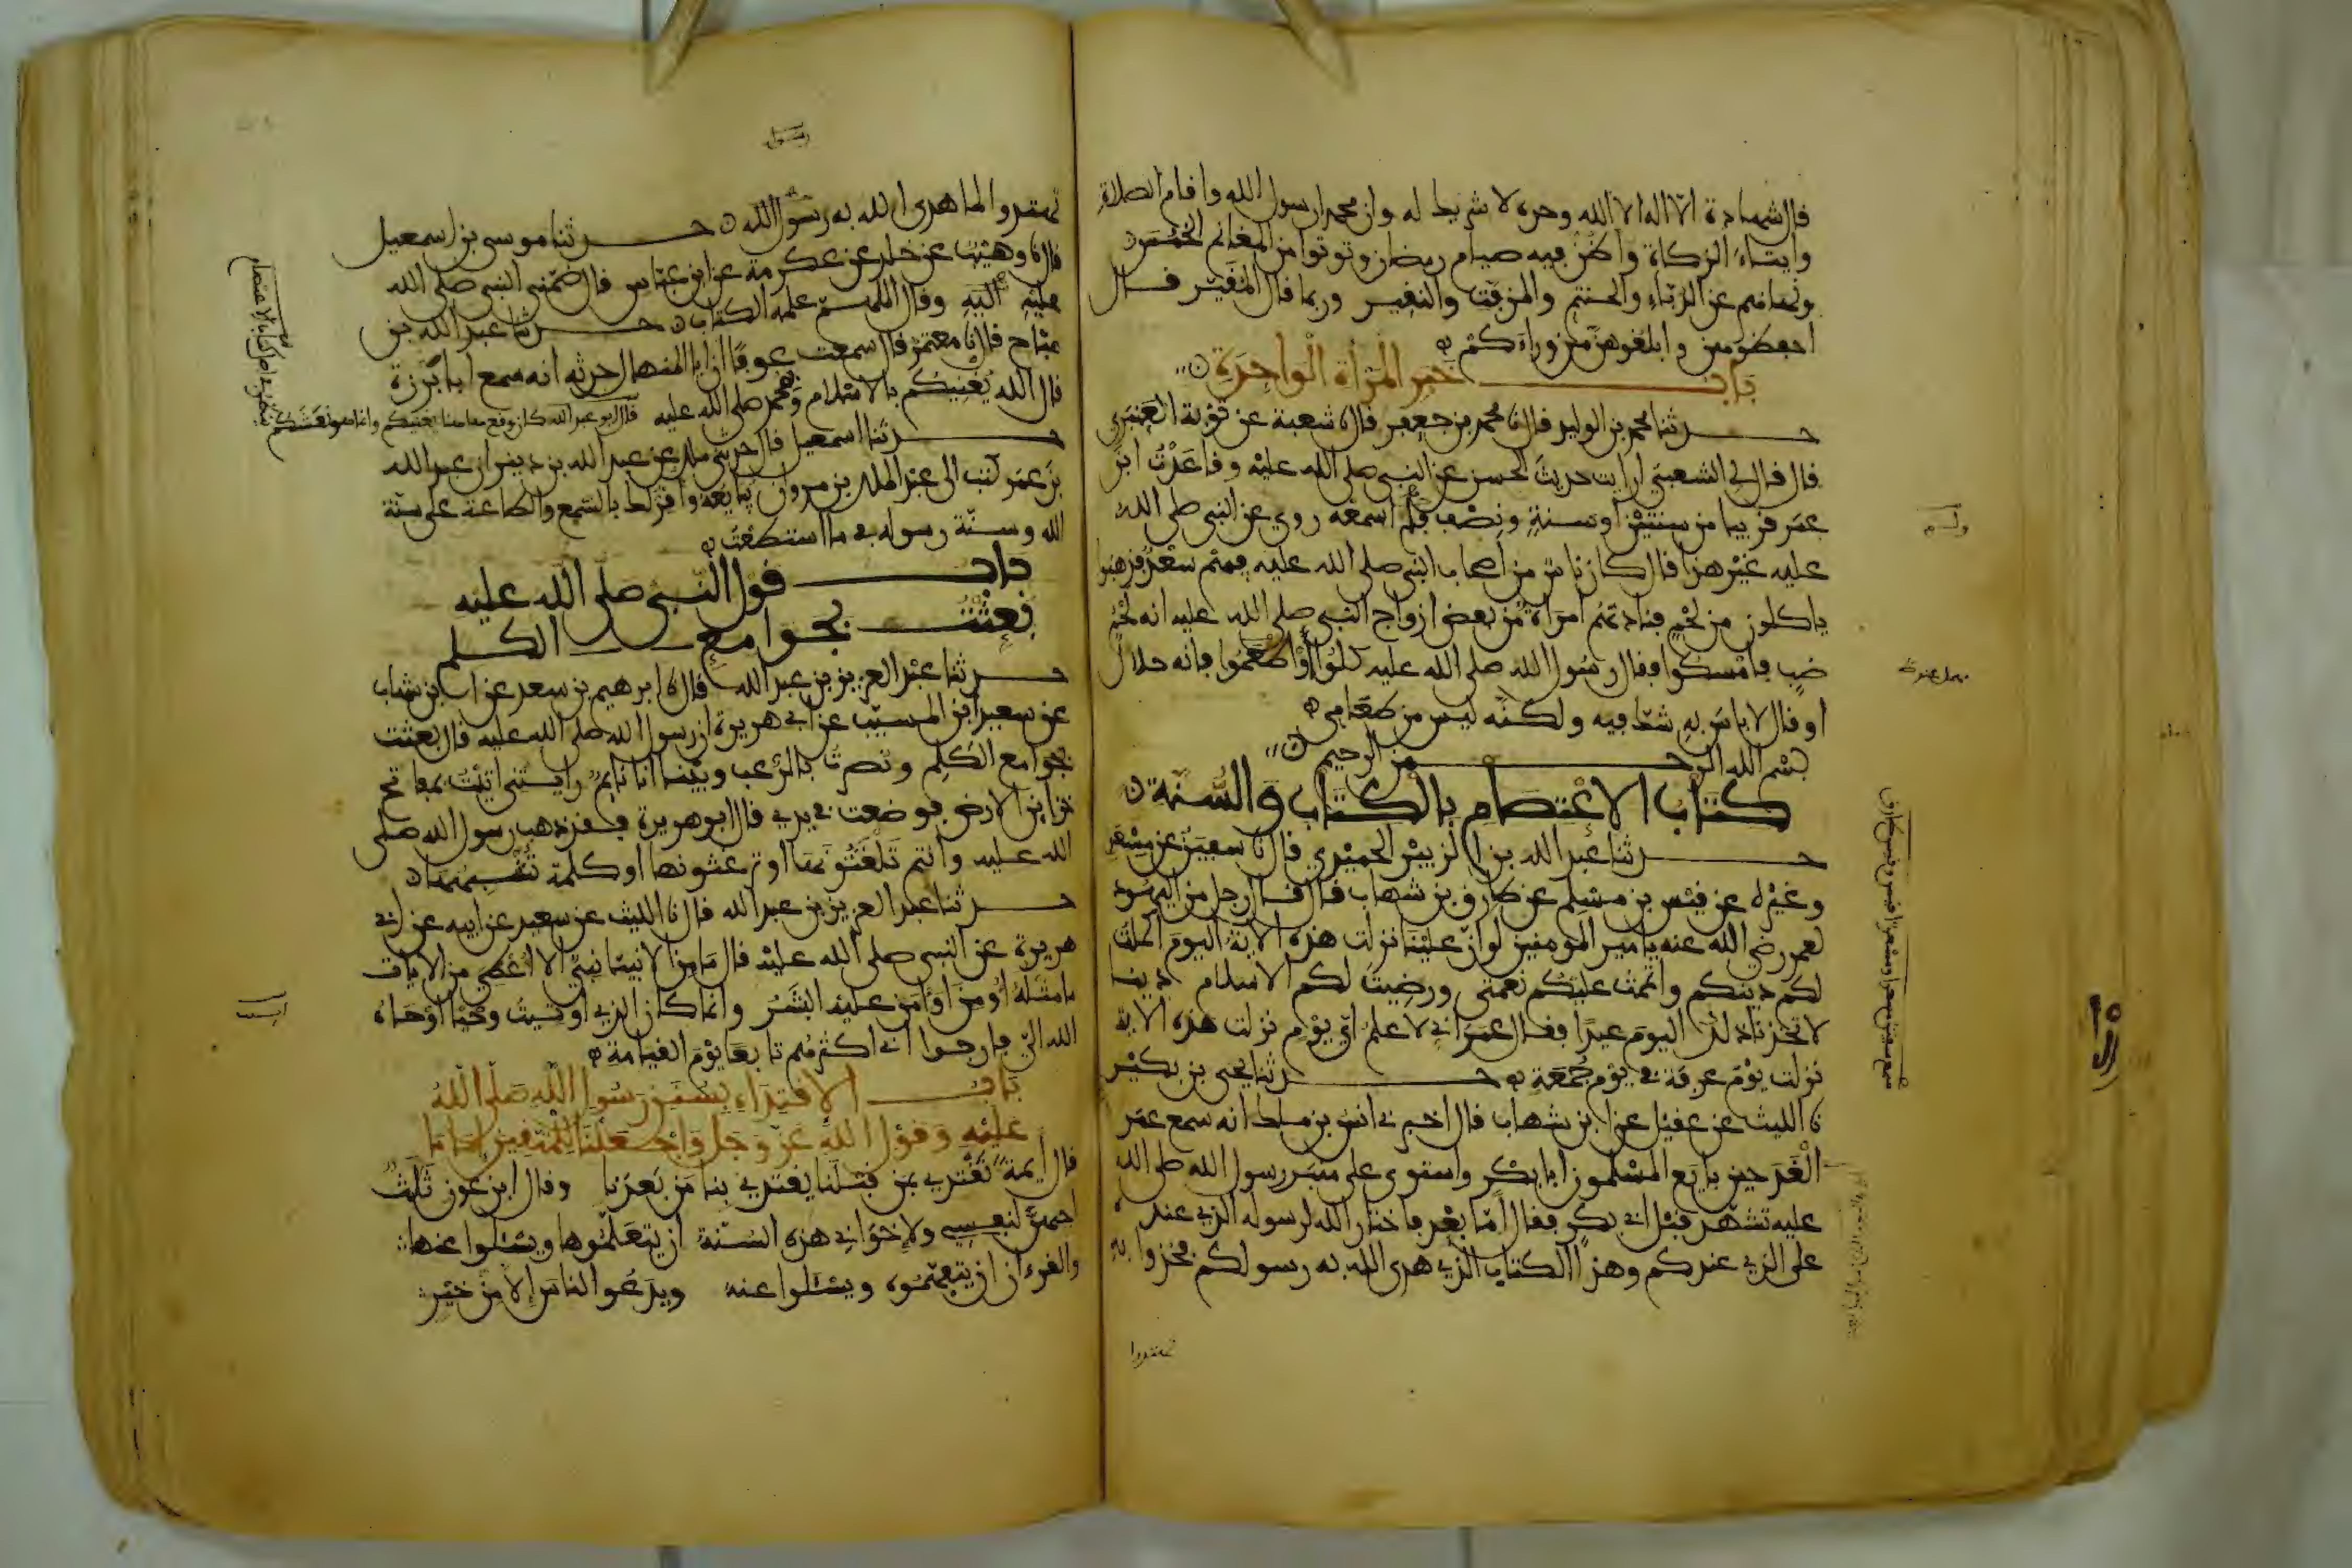 قال شهادة الا اله الا الله وحده لا شريك له وان محمدا رسول الله واقام الصلاة
وايتاء الزكاة واظن فيه صيام رمضان وتوتوا من المغانم الخمس
ونهاهم عن الدباء والحنتم والمزفت والنقير وربما قال المقير قال
احفظوهن وابلغوهن من وراءكم
باب خبر المرأة الواحدة
حدثنا محمد بن الوليد قال نا محمد بن جعفر قال نا شعبة عن توبة العنبري
قال قال لي الشعبي ارايت حديث الحسن عن النبي صلى الله عليه وقاعدت ابن
عمر قريبا من سنتين او سنة ونصف فلم اسمعه روى عن النبي صلى الله
عليه غير هذا قال كان ناس من اصحاب النبي صلى الله عليه فيهم سعد فذهبوا
ياكلون من لحم فنادتهم امراة من بعض ازواج النبي صلى الله عليه انه لحم
ضب فامسكوا فقال رسول الله صلى الله عليه كلوا او اطعموا فانه حلال
او قال لا باس به شك فيه ولكنه ليس من طعامي
بسم الله الرحمن الرحيم
كتاب الاعتصام بالكتاب والسنة
حدثنا عبد الله بن الزبير الحميدي قال نا سفين عن مسعر
وغيره عن قيس بن مسلم عن طارق بن شهاب قال قال رجل من اليهود
لعمر رضي الله عنه يا امير المومنين لو ان علينا نزلت هذه الاية اليوم اكملت
لكم دينكم واتممت عليكم نعمتي ورضيت لكم الاسلام دينا
لاتخذنا ذلك اليوم عيدا فقال عمر اني لاعلم اي يوم نزلت هذه الاية
نزلت يوم عرفة في يوم جمعة حدثنا يحيى بن بكير
نا الليث عن عقيل عن ابن شهاب قال اخبرني انس بن ملك انه سمع عمر
الغد حين بايع المسلمون ابا بكر واستوى على منبر رسول الله صلى الله
عليه تشهد قبل ابي بكر فقال اما بعد فاختار الله لرسوله الذي عنده
على الذي عندكم وهذا الكتاب الذي هدى الله به رسولكم فخذوا به
تهتدوا
سمع سفين مسعرا ومسعر قيسا وقيس طارقا
رسول
تهتدوا لما هدى الله به رسول الله حدثنا موسى بن اسمعيل
قال نا وهيب عن خلد عن عكرمة عن ابن عباس قال ضمني النبي صلى الله
عليه اليه وقال اللهم علمه الكتاب حدثنا عبد الله بن
صباح قال نا معتمر قال سمعت عوفا ان ابا المنهال حدثه انه سمع ابا برزة
قال الله يغنيكم بالاسلام وبمحمد صلى الله عليه قال ابو عبد الله كان وقع هاهنا يغنيكم وانما هو نعشكم
ينظر في اصل كتاب الاعتصام
حدثنا اسمعيل قال حدثني ملك عن عبد الله بن دينر ان عبد الله
بن عمر كتب الى عبد الملك بن مروان يبايعه واقر لك بالسمع والطاعة على سنة
الله وسنة رسوله في ما استطعت
باب قول النبي صلى الله عليه
بعثت بجوامع الكلم
حدثنا عبد العزيز بن عبد الله قال نا ابرهيم بن سعد عن ابن شهاب
عن سعيد ابن المسيب عن ابي هريرة ان رسول الله صلى الله عليه قال بعثت
بجوامع الكلم ونصرت بالرعب وبينما انا نايم رايتني اتيت بمفاتح
خزاين الارض فوضعت في يدي قال ابو هريرة فقد ذهب رسول الله صلى
الله عليه وانتم تلغثونها او ترغثونها او كلمة تشبهها
حدثنا عبد العزيز بن عبد الله قال نا الليث عن سعيد عن ابيه عن ابي
هريرة عن النبي صلى الله عليه قال ما من الانبيا نبي الا اعطي من الايات
ما مثله اومن او امن عليه البشر وانما كان الذي اوتيت وحيا اوحاه
الله الي فارجوا اني اكثرهم تابعا يوم القيامة
باب الاقتداء بسنن رسول الله صلى الله
عليه وقول الله عز وجل واجعلنا للمتقين اماما
قال ايمة نقتدي بمن قبلنا يقتدي بنا من بعدنا وقال ابن عون ثلث
احبهن لنفسي ولاخواني هذه السنة ان يتعلموها ويسئلوا عنها
والقرءان ان يتفهموه ويسئلوا عنه ويدعوا الناس الا من خير